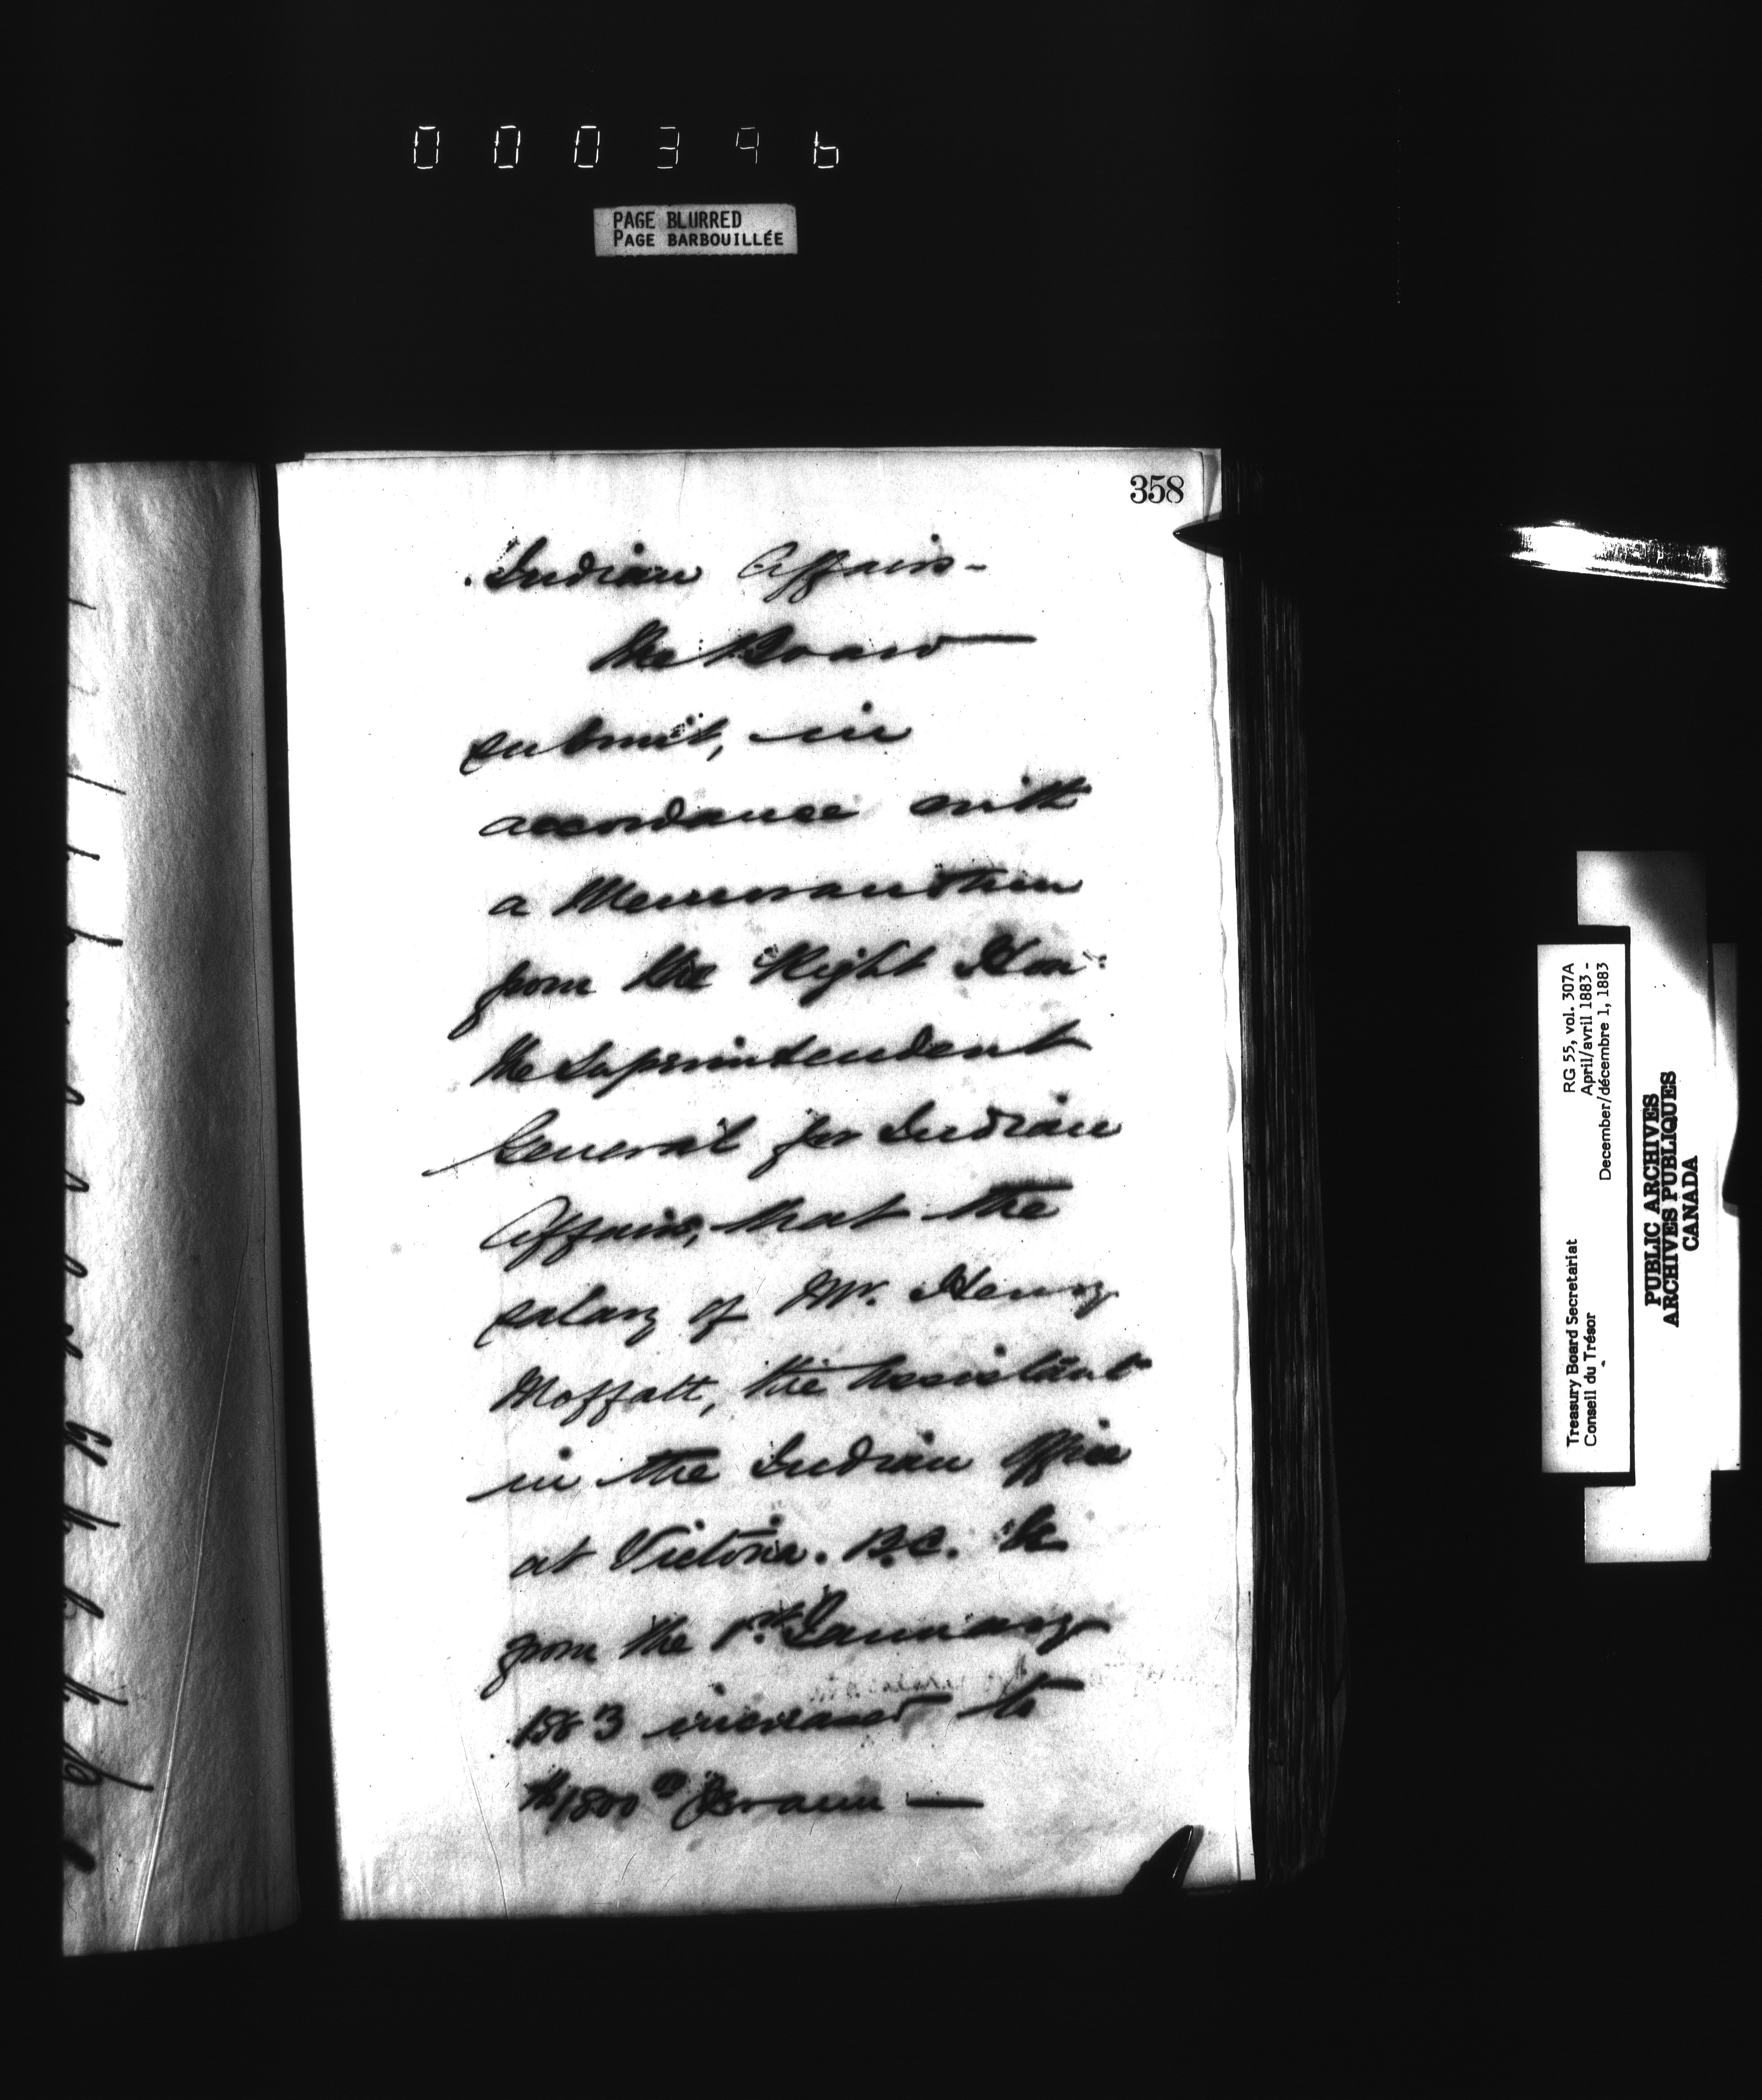 000396
PAGE BLURRED
PAGE BARBOUILLÉE
358
Indian Affairs -
The Board
submit, in
accordance with
a Memorandum
from the Right Hon:
the Superintendent
General for Indian
Affairs, that the
salary of Mr. Henry
Moffatt, the Assistant
in the Indian Office
at Victoria. B.C. be
from the 1st January
1883 increased to
$1800 p annum —
RG 55, vol. 307A
April/avril 1883 -
December/décembre 1, 1883
Treasury Board Secretariat
Conseil du Trésor
PUBLIC ARCHIVES
ARCHIVES PUBLIQUES
CANADA